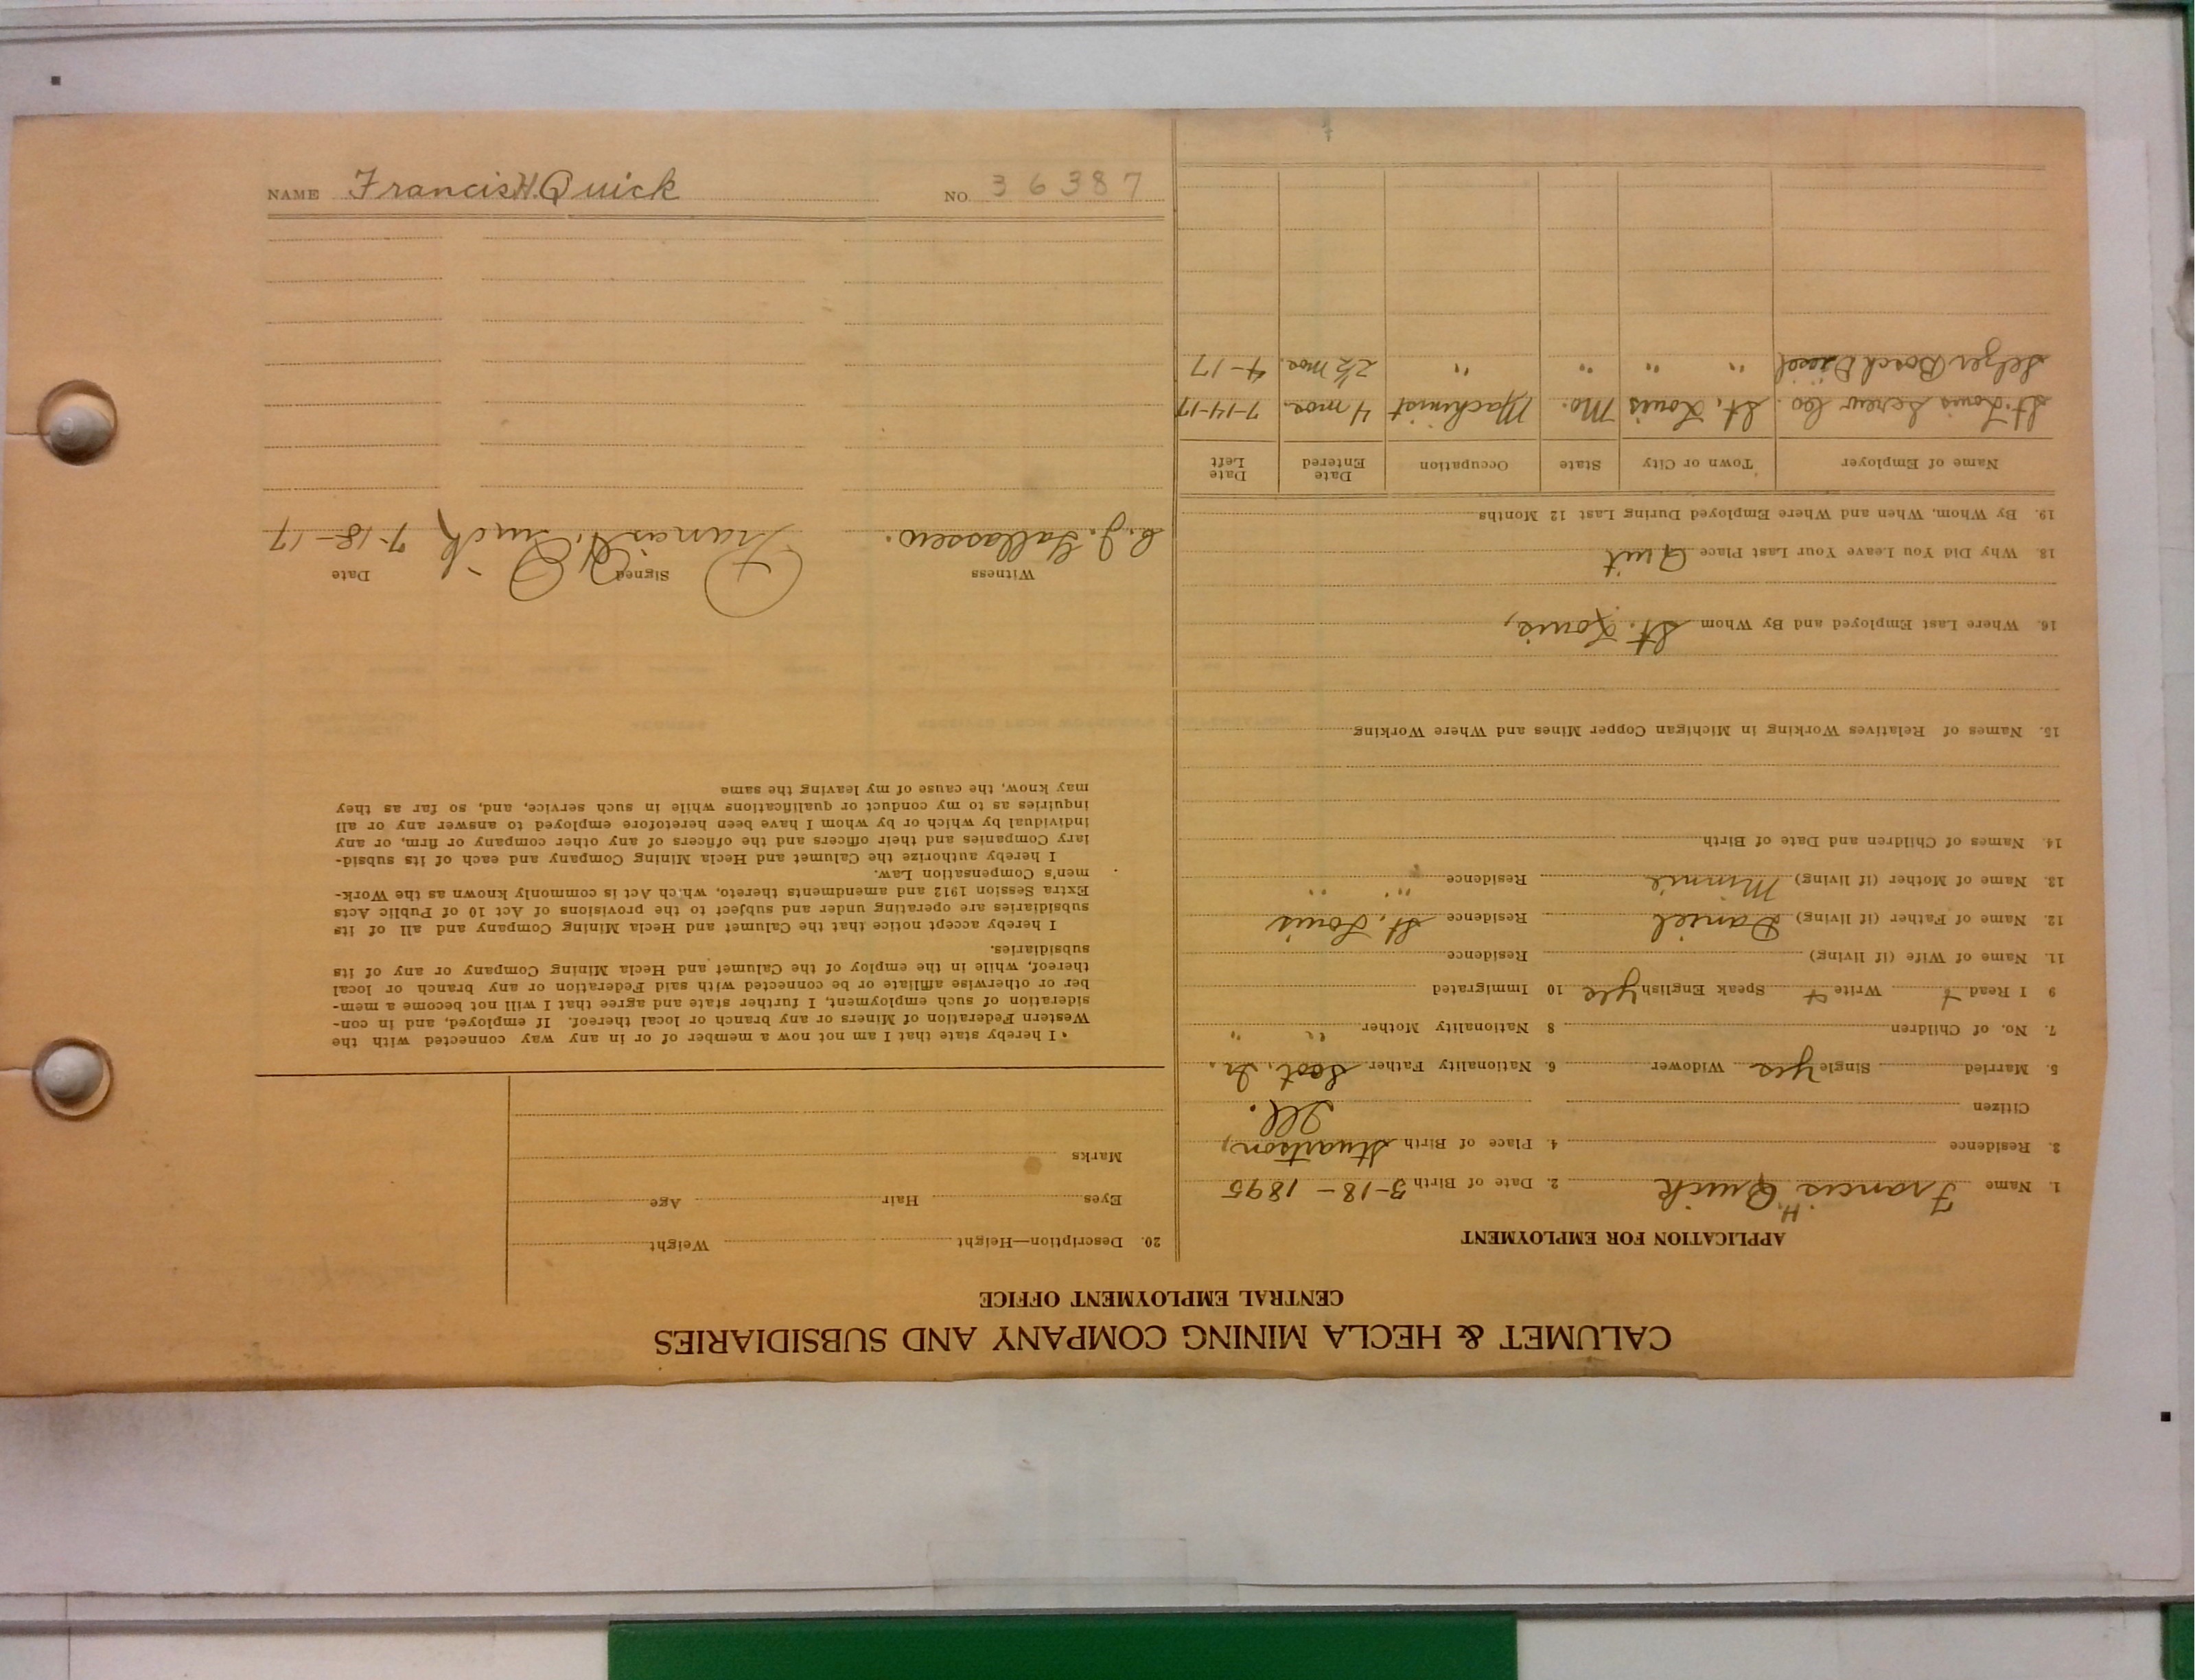 CALUMET & HECLA MINING COMPANY AND SUBSIDIARIES
CENTRAL EMPLOYMENT OFFICE
APPLICATION FOR EMPLOYMENT
1. Name Francis H. Quick 2. Date of Birth 3-18-1895
3. Residence 4. Place of Birth Stuartson,
Citizen Ill.
5. Married Single yes Widower 6. Nationality Father Scot. Ir.
7. No. of Children 8 Nationality Mother " "
9 I Read + Write + Speak English yes 10 Immigrated
11. Name of Wife (if living) Residence
12. Name of Father (if living) Daniel Residence St. Louis
13. Name of Mother (if living) Minnie Residence " "
14. Names of Children and Date of Birth
15. Names of Relatives Working in Michigan Copper Mines and Where Working
16. Where Last Employed and By Whom St. Louis,
18. Why Did You Leave Your Last Place Quit
19. By Whom, When and Where Employed During Last 12 Months
Name of Employer Town or City State Occupation Date Entered Date Left
St. Louis Screw Co. St. Louis Mo. Machinist 4 mos. 7-14-17
Bosch Diesel " " " " 2½ mos. 4-17
20. Description—Height Weight
Eyes Hair Age
Marks
I hereby state that I am not now a member of or in any way connected with the
Western Federation of Miners or any branch or local thereof. If employed, and in con-
sideration of such employment, I further state and agree that I will not become a mem-
ber or otherwise affiliate or be connected with said Federation or any branch or local
thereof, while in the employ of the Calumet and Hecla Mining Company or any of its
subsidiaries.
I hereby accept notice that the Calumet and Hecla Mining Company and all of its
subsidiaries are operating under and subject to the provisions of Act 10 of Public Acts
Extra Session 1912 and amendments thereto, which Act is commonly known as the Work-
men's Compensation Law.
I hereby authorize the Calumet and Hecla Mining Company and each of its subsid-
iary Companies and their officers and the officers of any other company or firm, or any
individual by which or by whom I have been heretofore employed to answer any or all
inquiries as to my conduct or qualifications while in such service, and, so far as they
may know, the cause of my leaving the same
Witness Signed Date
Francis H. Quick 7-18-17
NAME Francis H. Quick NO. 36387